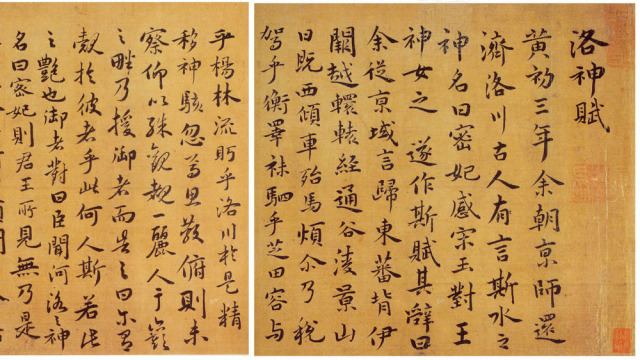 洛神賦
黃初三年余朝京師還
濟洛川古人有言斯水之
神名曰宓妃感宋玉對王
神女之 遂作斯賦其辭曰
余從京域言歸東蕃背伊
闕越轘轅經通谷陵景山
日既西傾車殆馬煩尒乃稅
駕乎蘅皋秣駟乎芝田容與
乎楊林流眄乎洛川於是精
移神駭忽焉思散俯則未
察仰以殊觀覩一麗人于巖
之畔乃援御者而告之曰尔有
覿於彼者乎此何人斯若此
之豔也御者對曰臣聞河洛之神
名曰宓妃則君王所見無乃是